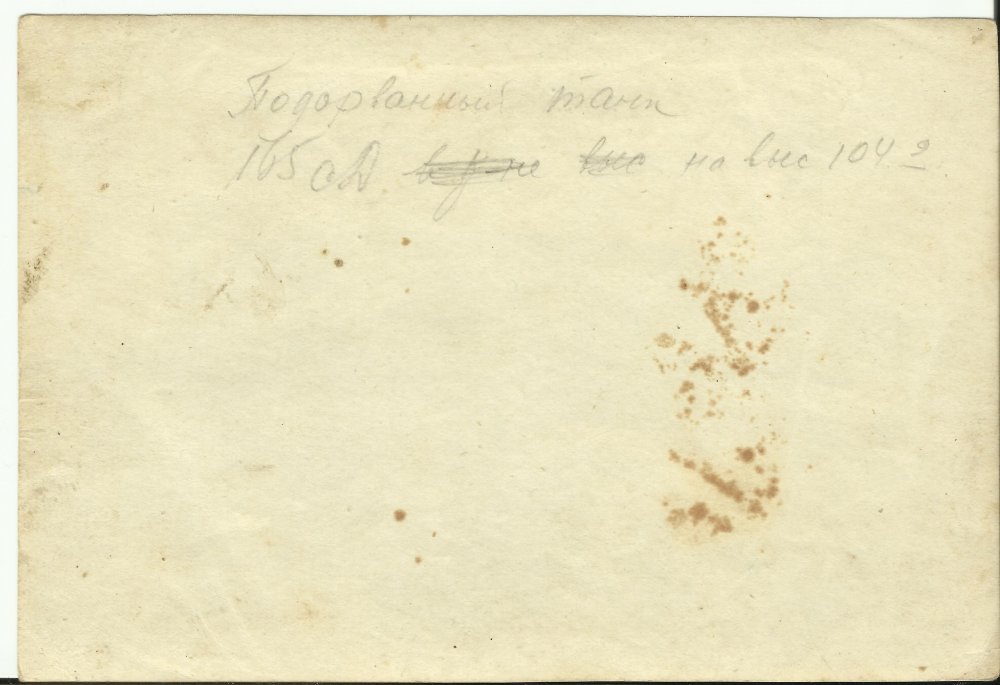 Подорванный танк
165 сд на выс 104 2